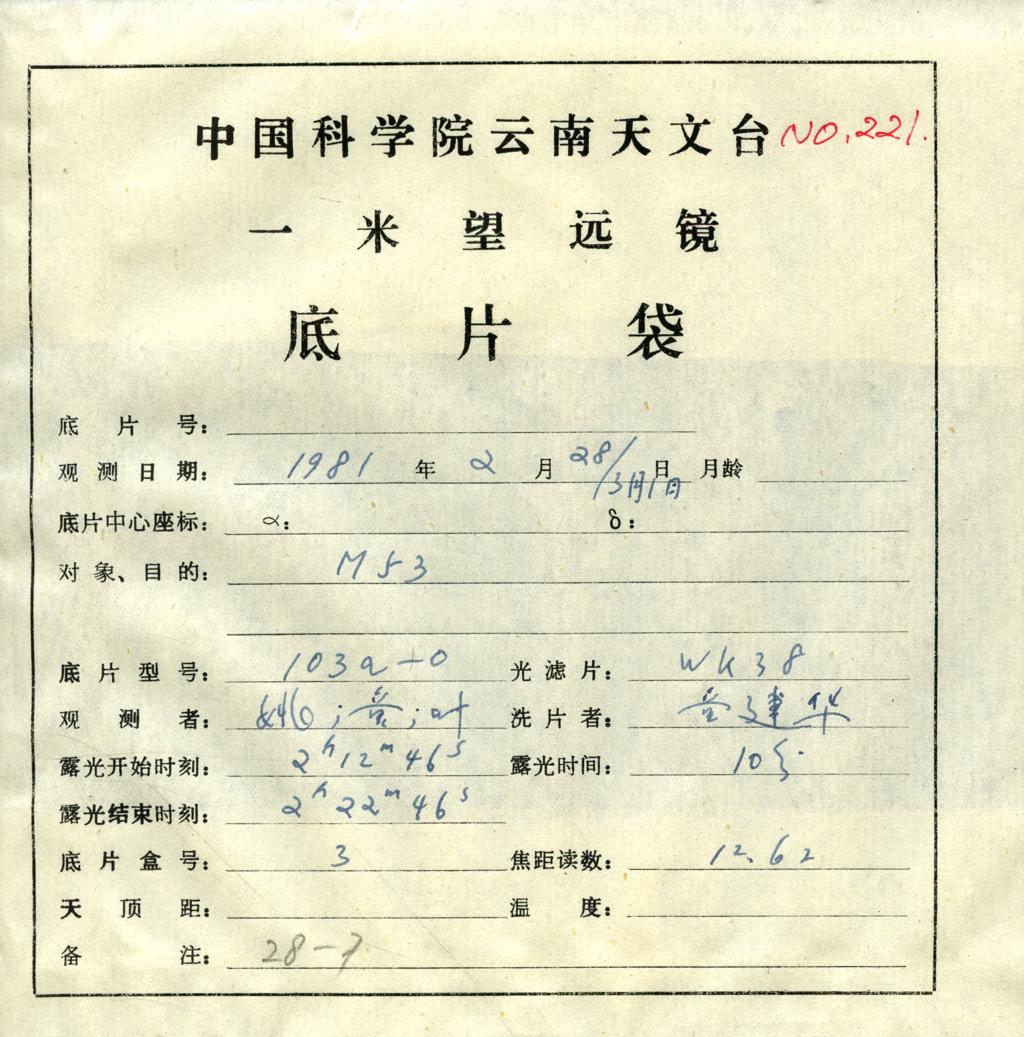 中国科学院云南天文台 NO.221.
一米望远镜
底片袋
底片号:
观测日期: 1981 年 2 月 28/3月1日 日 月龄
底片中心座标: α: δ:
对象、目的: M53
底片型号: 103a-O 光滤片: WK38
观测者: 洗片者: 建华
露光开始时刻: 2h12m46s 露光时间: 10分
露光结束时刻: 2h22m46s
底片盒号: 3 焦距读数: 12.62
天顶距: 温度:
备注: 28-7